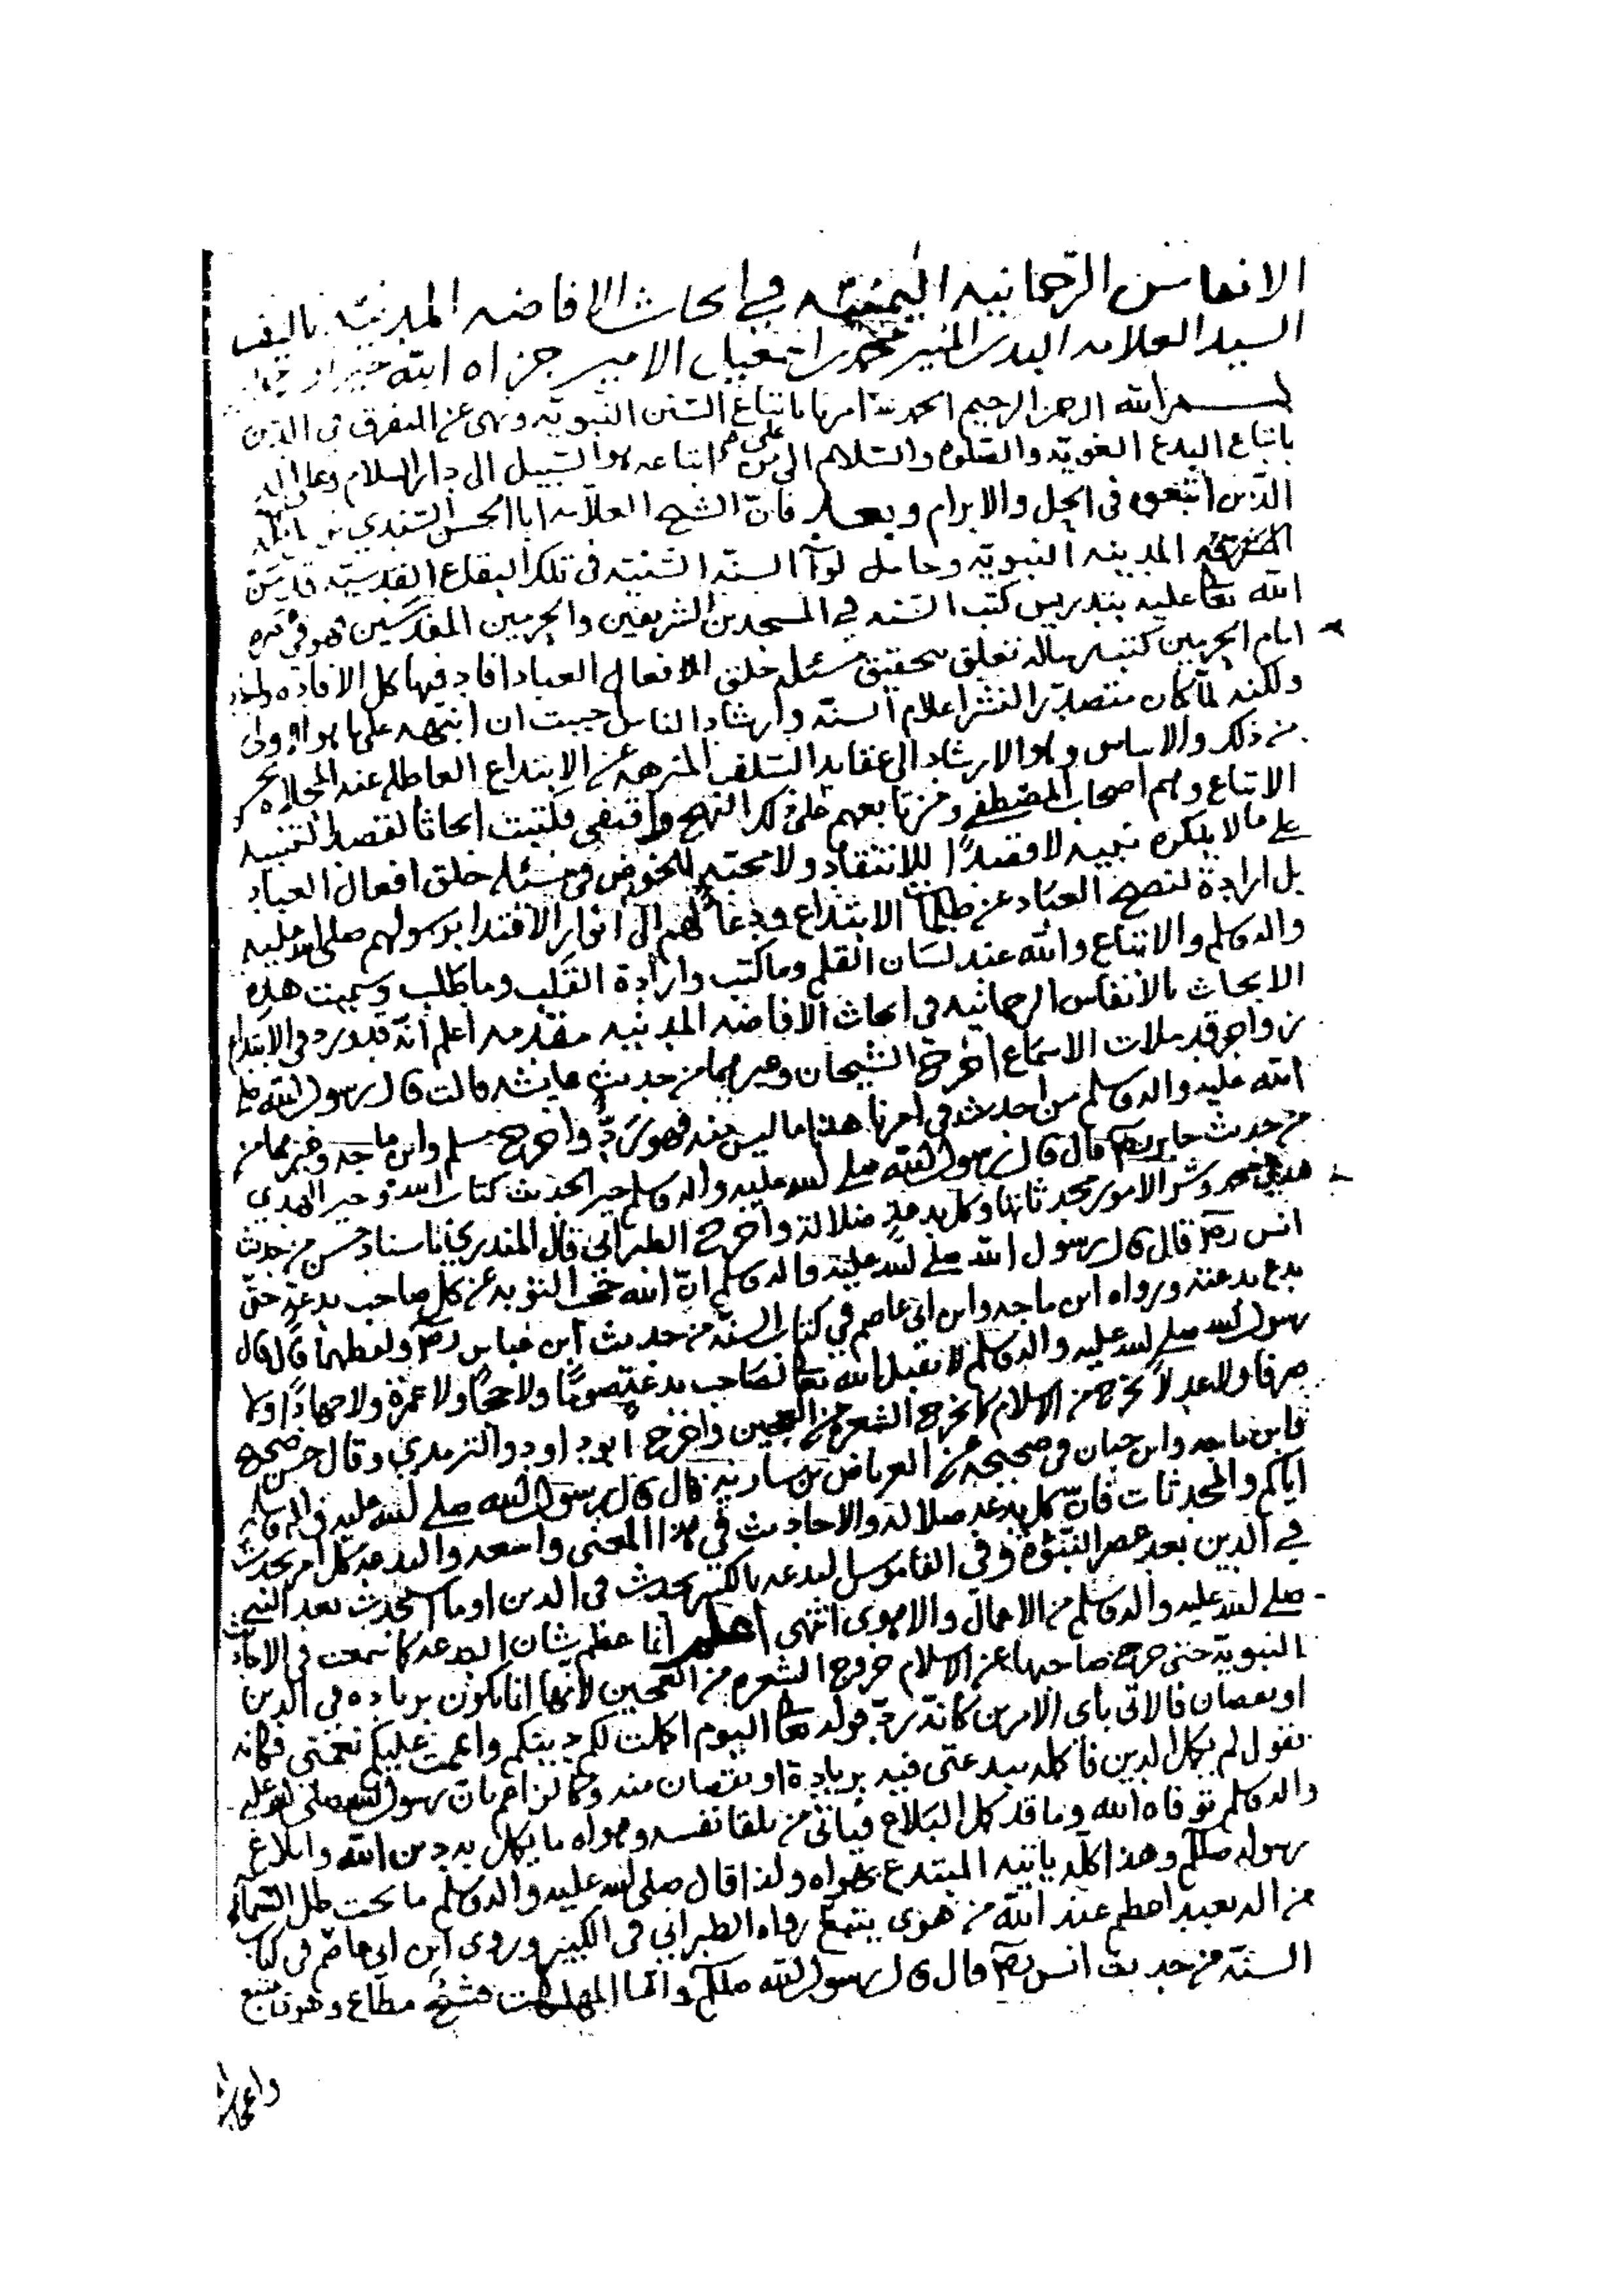 الانفاس الرحمانيه اليمنيه في ابحاث الافاضه المدنيه تاليف
السيد العلامه البدر المنير محمد بن اسمعيل الامير جزاه الله خيرا
بسم الله الرحمن الرحيم الحمد لله امرنا باتباع السنن النبويه ونهى عن التفرق في الدين
باتباع البدع الغويه والصلوة والسلام على من اتباعه هو السبيل الى دار السلام وعلى اله
الذين اتبعوه في الحل والابرام وبعد فان الشيخ العلامه ابا الحسن السندي
المدينه النبويه وحامل لوآ السنه السنيه في تلك البقاع القدسيه قد من
الله تعا عليه بتدريس كتب السنه في المسجدين الشريفين والحرمين المقدسين فهو في عصره
امام الحرمين كتب رساله تتعلق بتحقيق مسئله خلق الافعال العباد افاد فيها كل الافاده
ولكنه لما كان متصدرا لنشر اعلام السنه وارشاد الناس احببت ان انبهه على ما هو اولى
من ذلك والاساس وهو الارشاد الى عقايد السلف المنزهه عن الابتداع العاطله عنه المحلاه بحر
الاتباع وهم اصحاب المصطفى ومن تابعهم على ذلك النهج واقتفى فكتبت ابحاثا لقصد التنبيه
على ما لا ينكره نبيه لا قصدًا للانتقاد ولا محبته للخوض في مسئله خلق افعال العباد
بل ارادة لنصح العباد عن ظلمات الابتداع ودعا لهم الى انوار الاقتدا برسولهم صلى الله عليه
واله وسلم والاتباع والله عند لسان القلم وما كتب وارادة القلب وما طلب وسميت هذه
الابحاث بالانفاس الرحمانيه في ابحاث الافاضه المدنيه مقدمه اعلم انه قد ورد في الابتداع
زواجر قد ملات الاسماع اخرج الشيخان وغيرهما من حديث عايشه قالت قال رسول الله صلى
الله عليه واله وسلم من احدث في امرنا هذا ما ليس منه فهو رد واخرج مسلم وابن ماجه وغيرهما من
من حديث جابر رضي قال قال رسول الله صلى الله عليه واله وسلم خير الحديث كتاب الله وخير الهدي
هدي محمد وشر الامور محدثاتها وكل بدعة ضلالة واخرج الطبراني قال المنذري باسناد حسن من حديث
انس رضي قال قال رسول الله صلى الله عليه واله وسلم ان الله حجب التوبه عن كل صاحب بدعة حتى
يدع بدعته ورواه ابن ماجه وابن ابي عاصم في كتاب السنه من حديث ابن عباس رضي ولفظهما قال قال
رسول الله صلى الله عليه واله وسلم لا يقبل الله تعا لصاحب بدعة صومًا ولا حجًا ولا عمرة ولا جهادًا ولا
صرفا ولا عدلًا يخرج من الاسلام كما يخرج الشعره من العجين واخرج ابو داود والترمذي وقال حسن صحيح
وابن ماجه وابن حبان في صحيحه عن العرباض بن ساريه قال قال رسول الله صلى الله عليه واله وسلم
اياكم والمحدثات فان كل بدعه ضلاله والاحاديث في هذا المعنى واسعه والبدعه كل امر يحدث
في الدين بعد عصر النبوة وفي القاموس البدعه بالكسر الحدث في الدين او ما استحدث بعد النبي
صلى الله عليه واله وسلم من الاعمال والاهوى انتهى اعلم انما عظم شان البدعه كما سمعت في الاحاديث
النبويه حتى خرج صاحبها عن الاسلام خروج الشعره من العجين لانها انما تكون بزياده في الدين
او نقصان فالاتي باي الامرين كانه يرد قوله تعا اليوم اكملت لكم دينكم واتممت عليكم نعمتي فكانه
يقول لم يكمل الدين فاكمله ببدعتي فيه بزيادة او نقصان منه وكالزاعم بان رسول الله صلى الله عليه
واله وسلم توفاه الله وما قد كمل البلاغ فياتي من تلقا نفسه وهواه ما يكمل به دين الله وابلاغ
رسوله صللم وهذا كله ياتيه المبتدع بهواه ولذا قال صلى الله عليه واله وسلم ما تحت ظل السماء
من اله يعبد اعظم عند الله من هوى يتبع رواه الطبراني في الكبير وروى ابن ابي عاصم في كتاب
السنه من حديث انس رضي قال قال رسول الله صللم واما المهلكات فشح مطاع وهوى متبع